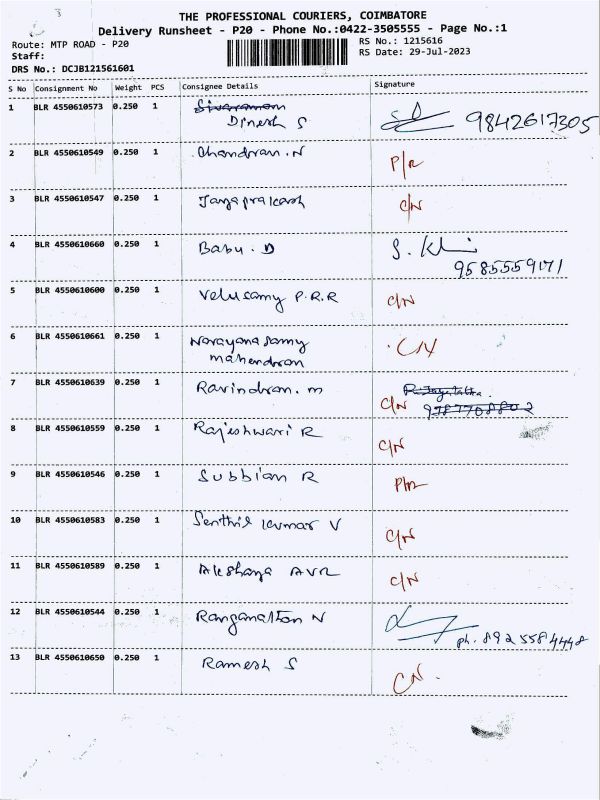 THE PROFESSIONAL COURIERS, COIMBATORE
Delivery Runsheet - P20 - Phone No.:0422-3505555 - Page No.:1
Route: MTP ROAD - P20 RS No.: 1215616
Staff: RS Date: 29-Jul-2023
DRS No.: DCJB121561601
S No Consignment No Weight PCS Consignee Details Signature
1 BLR 4550610573 0.250 1 Sivaraman
Dinesh S 9842617305
2 BLR 4550610549 0.250 1 Chandran.N P/R
3 BLR 4550610547 0.250 1 Jayaprakash C/N
4 BLR 4550610660 0.250 1 Babu. D
9585559171
5 BLR 4550610600 0.250 1 Velusamy P.R.R C/N
6 BLR 4550610661 0.250 1 Narayanasamy
mahendran C/N
7 BLR 4550610639 0.250 1 Ravindran. m
C/N 9787708802
8 BLR 4550610559 0.250 1 Rajeshwari R C/N
9 BLR 4550610546 0.250 1 Subbian R P/R
10 BLR 4550610583 0.250 1 Senthil kumar V C/N
11 BLR 4550610589 0.250 1 Akshaya AVR C/N
12 BLR 4550610544 0.250 1 Ranganathan N
ph. 8925584448
13 BLR 4550610650 0.250 1 Ramesh S CN.